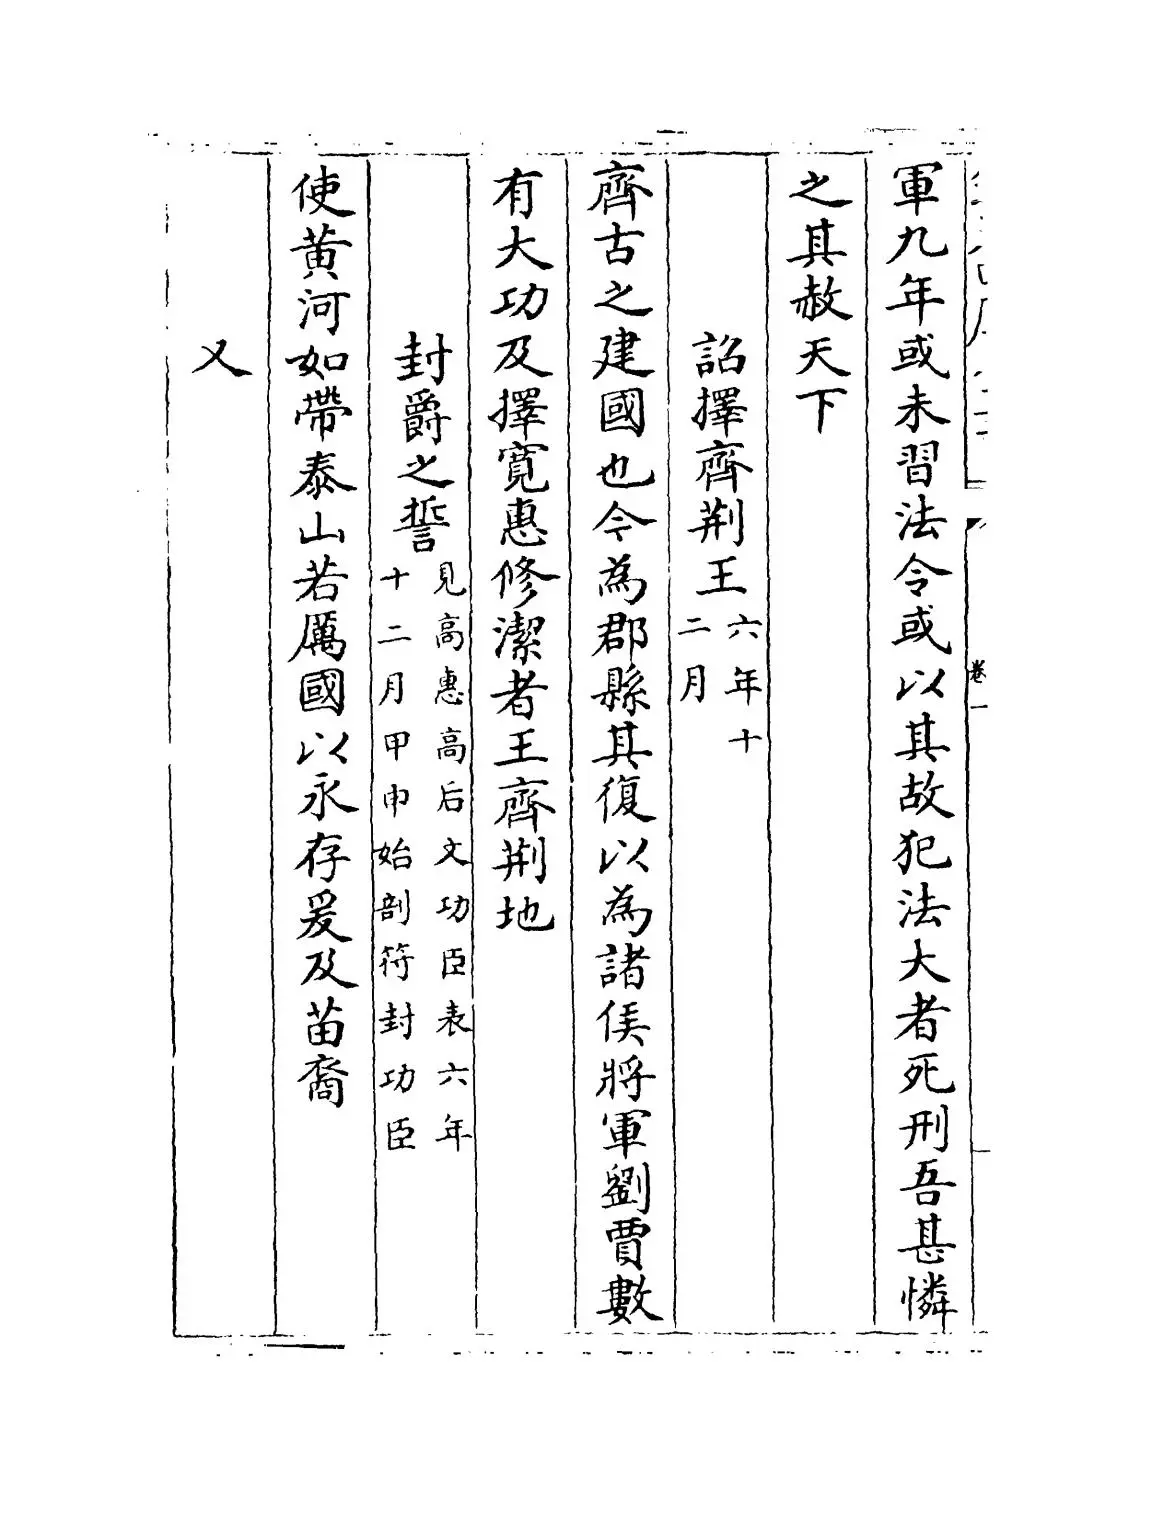 卷一
軍九年或未習法令或以其故犯法大者死刑吾甚憐
之其赦天下
詔擇齊荆王六年十
二月
齊古之建國也今為郡縣其復以為諸侯將軍劉賈數
有大功及擇寛惠修潔者王齊荆地
封爵之誓見高惠高后文功臣表六年
十二月甲申始剖符封功臣
使黄河如帶泰山若厲國以永存爰及苗裔
又